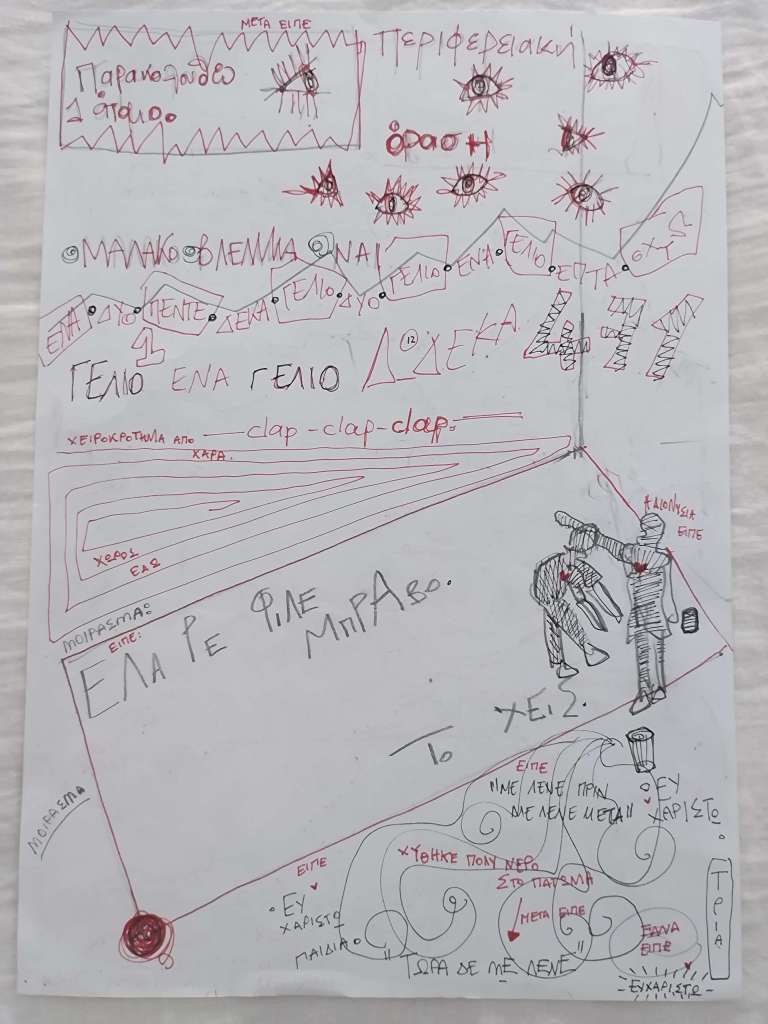 ΜΕΤΑ ΕΙΠΕ
Παρακολουθώ
1 άτομο.
Περιφερειακή
όραση
ΜΑΛΑΚΟ ΒΛΕΜΜΑ ΝΑΙ
ΕΝΑ ΔΥΟ ΠΕΝΤΕ ΔΕΚΑ ΓΕΛΙΟ ΔΥΟ ΓΕΛΙΟ ΕΝΑ ΓΕΛΙΟ ΕΠΤΑ ΟΧΙ
1
ΓΕΛΙΟ ΕΝΑ ΓΕΛΙΟ
ΔΩΔΕΚΑ
12
4
11
ΧΕΙΡΟΚΡΟΤΗΜΑ ΑΠΟ
ΧΑΡΑ.
clap - clap - clap.
ΧΩΡΟΣ
ΕΔΩ
ΜΟΙΡΑΣΜΑ:
ΕΙΠΕ:
ΕΛΑ ΡΕ ΦΙΛΕ
ΜΠΡΑΒΟ.
ΤΟ ΧΕΙΣ.
Η ΔΙΟΝΥΣΙΑ
ΕΙΠΕ
ΜΟΙΡΑΣΜΑ
ΕΙΠΕ
"ΜΕ ΛΕΝΕ ΠΡΙΝ
ΜΕ ΛΕΝΕ ΜΕΤΑ"
ΕΥ
ΧΑΡΙΣΤΩ
ΧΥΘΗΚΕ ΠΟΛΥ ΝΕΡΟ
ΣΤΟ ΠΑΤΩΜΑ
ΕΙΠΕ
ΕΥ
ΧΑΡΙΣΤΩ
ΠΑΙΔΙΑ
ΜΕΤΑ ΕΙΠΕ
"ΤΩΡΑ ΔΕ ΜΕ ΛΕΝΕ"
ΞΑΝΑ
ΕΙΠΕ
ΕΥΧΑΡΙΣΤΩ
ΤΡΙΑ